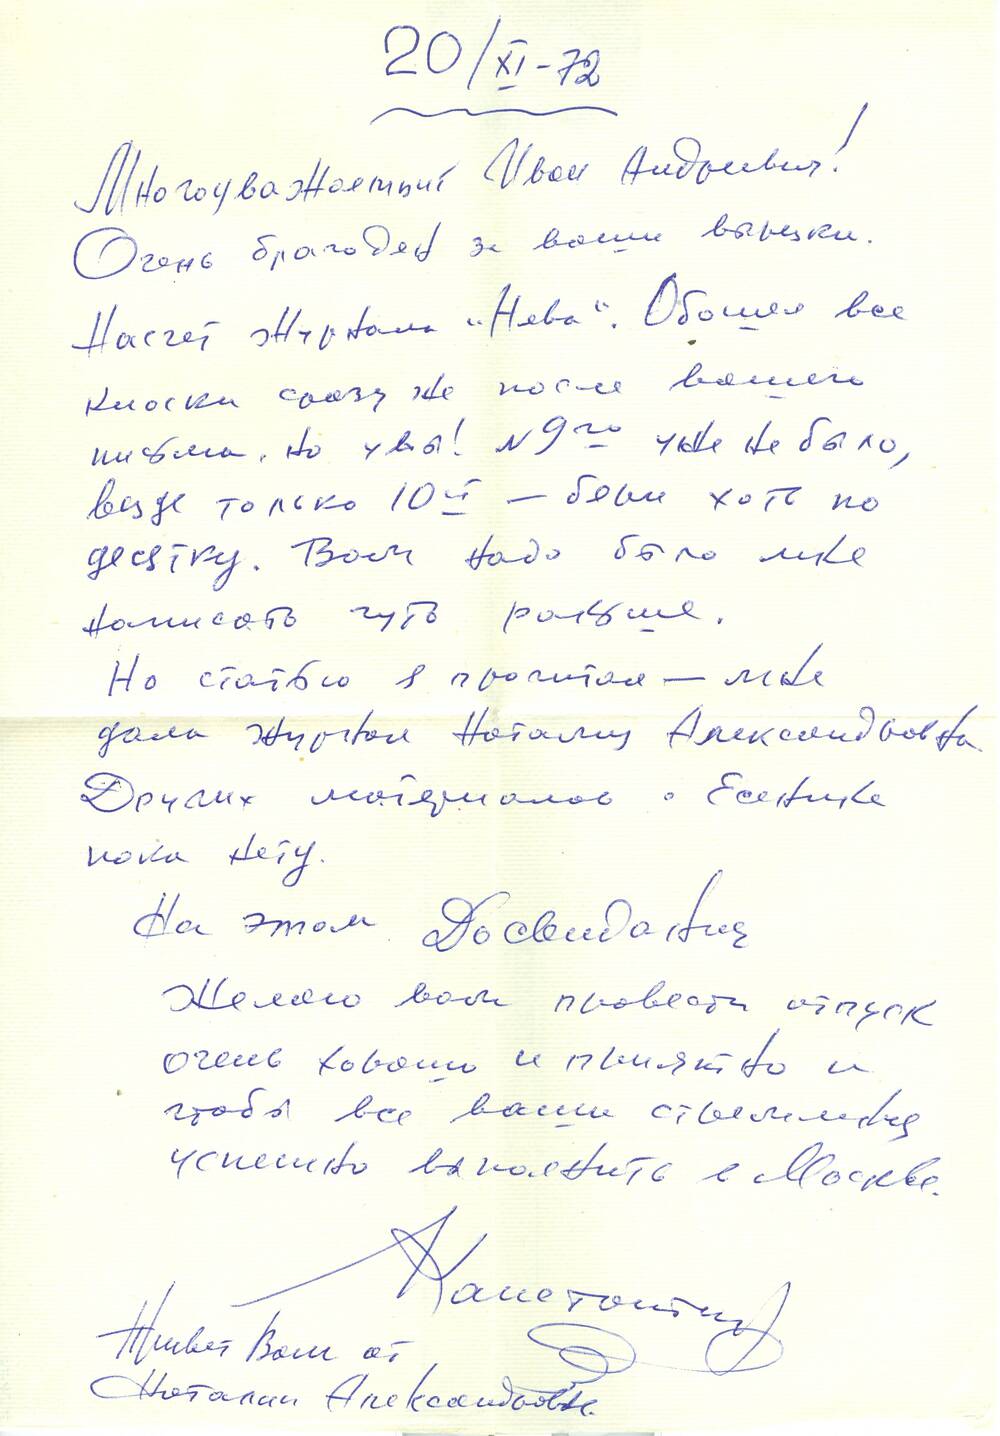 20/XI-72
Многоуважаемый Иван Андреевич!
Очень благодарен за ваши вырезки.
Насчет журнала "Нева". Обошел все
киоски сразу же после вашего
письма. но увы! N 9го уже не было,
везде только 10й — бери хоть по
десятку. Вам надо было мне
написать чуть раньше.
Но статью я прочитал — мне
дала журнал Наталия Александровна.
Других материалов о Есенине
пока нету.
На этом До свидания
Желаю вам провести отпуск
очень хорошо и приятно и
чтобы все ваши стремления
успешно выполнить в Москве.
Константин
Привет Вам от
Наталии Александровны.